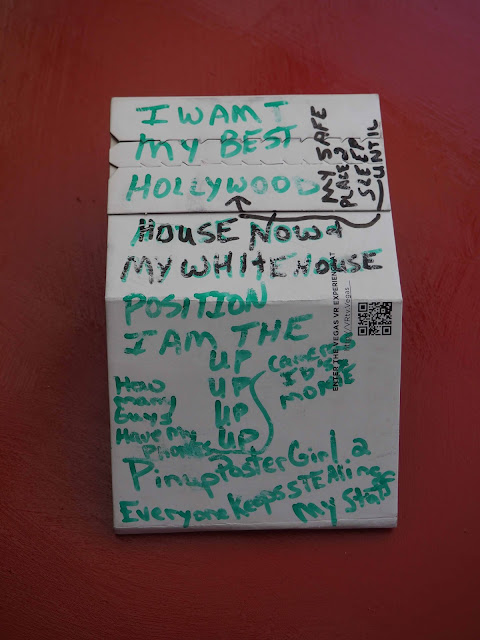 I WAMT
MY BEST
HOLLYWOOD
MY SAFE
PLACE 2
SLEEP
UNTIL
HOUSE NOW &
MY WHITEHOUSE
POSITION
I AM THE
UP
UP
UP
UP
How
many
Guys
Have My
PHONES
MORE
Pinup Poster Girl. 2
Everyone Keeps STEALing
my Stats
ENTER THE VEGAS VR EXPERIENCE